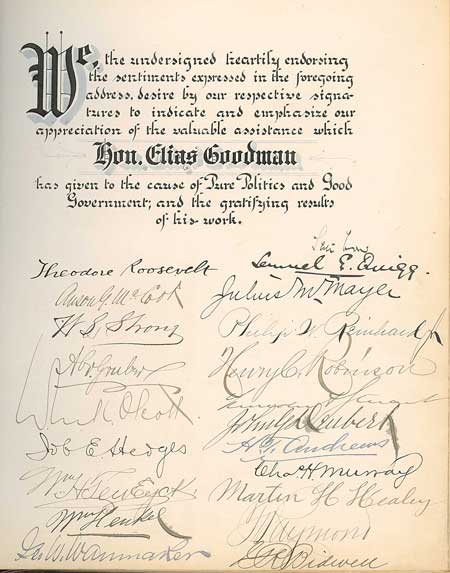 We, the undersigned heartily endorsing
the sentiments expressed in the foregoing
address, desire by our respective signa-
tures to indicate and emphasize our
appreciation of the valuable assistance which
Hon. Elias Goodman
has given to the cause of Pure Politics and Good
Government; and the gratifying results
of his work.
Theodore Roosevelt
Lemuel E. Quigg.
Anson G. McCook
Julius M. Mayer
W L Strong
Philip W. Reinhard Jr
Abr. Gruber
Henry C. Robinson
Wm R Olcott
John G
Job E Hedges
H. T. Andrews
Chas. H. Murray
Wm H. Ten Eyck
Martin H Healey
Wm Henkel
Raymond
Jas. W. Wannmaker
Bidwell